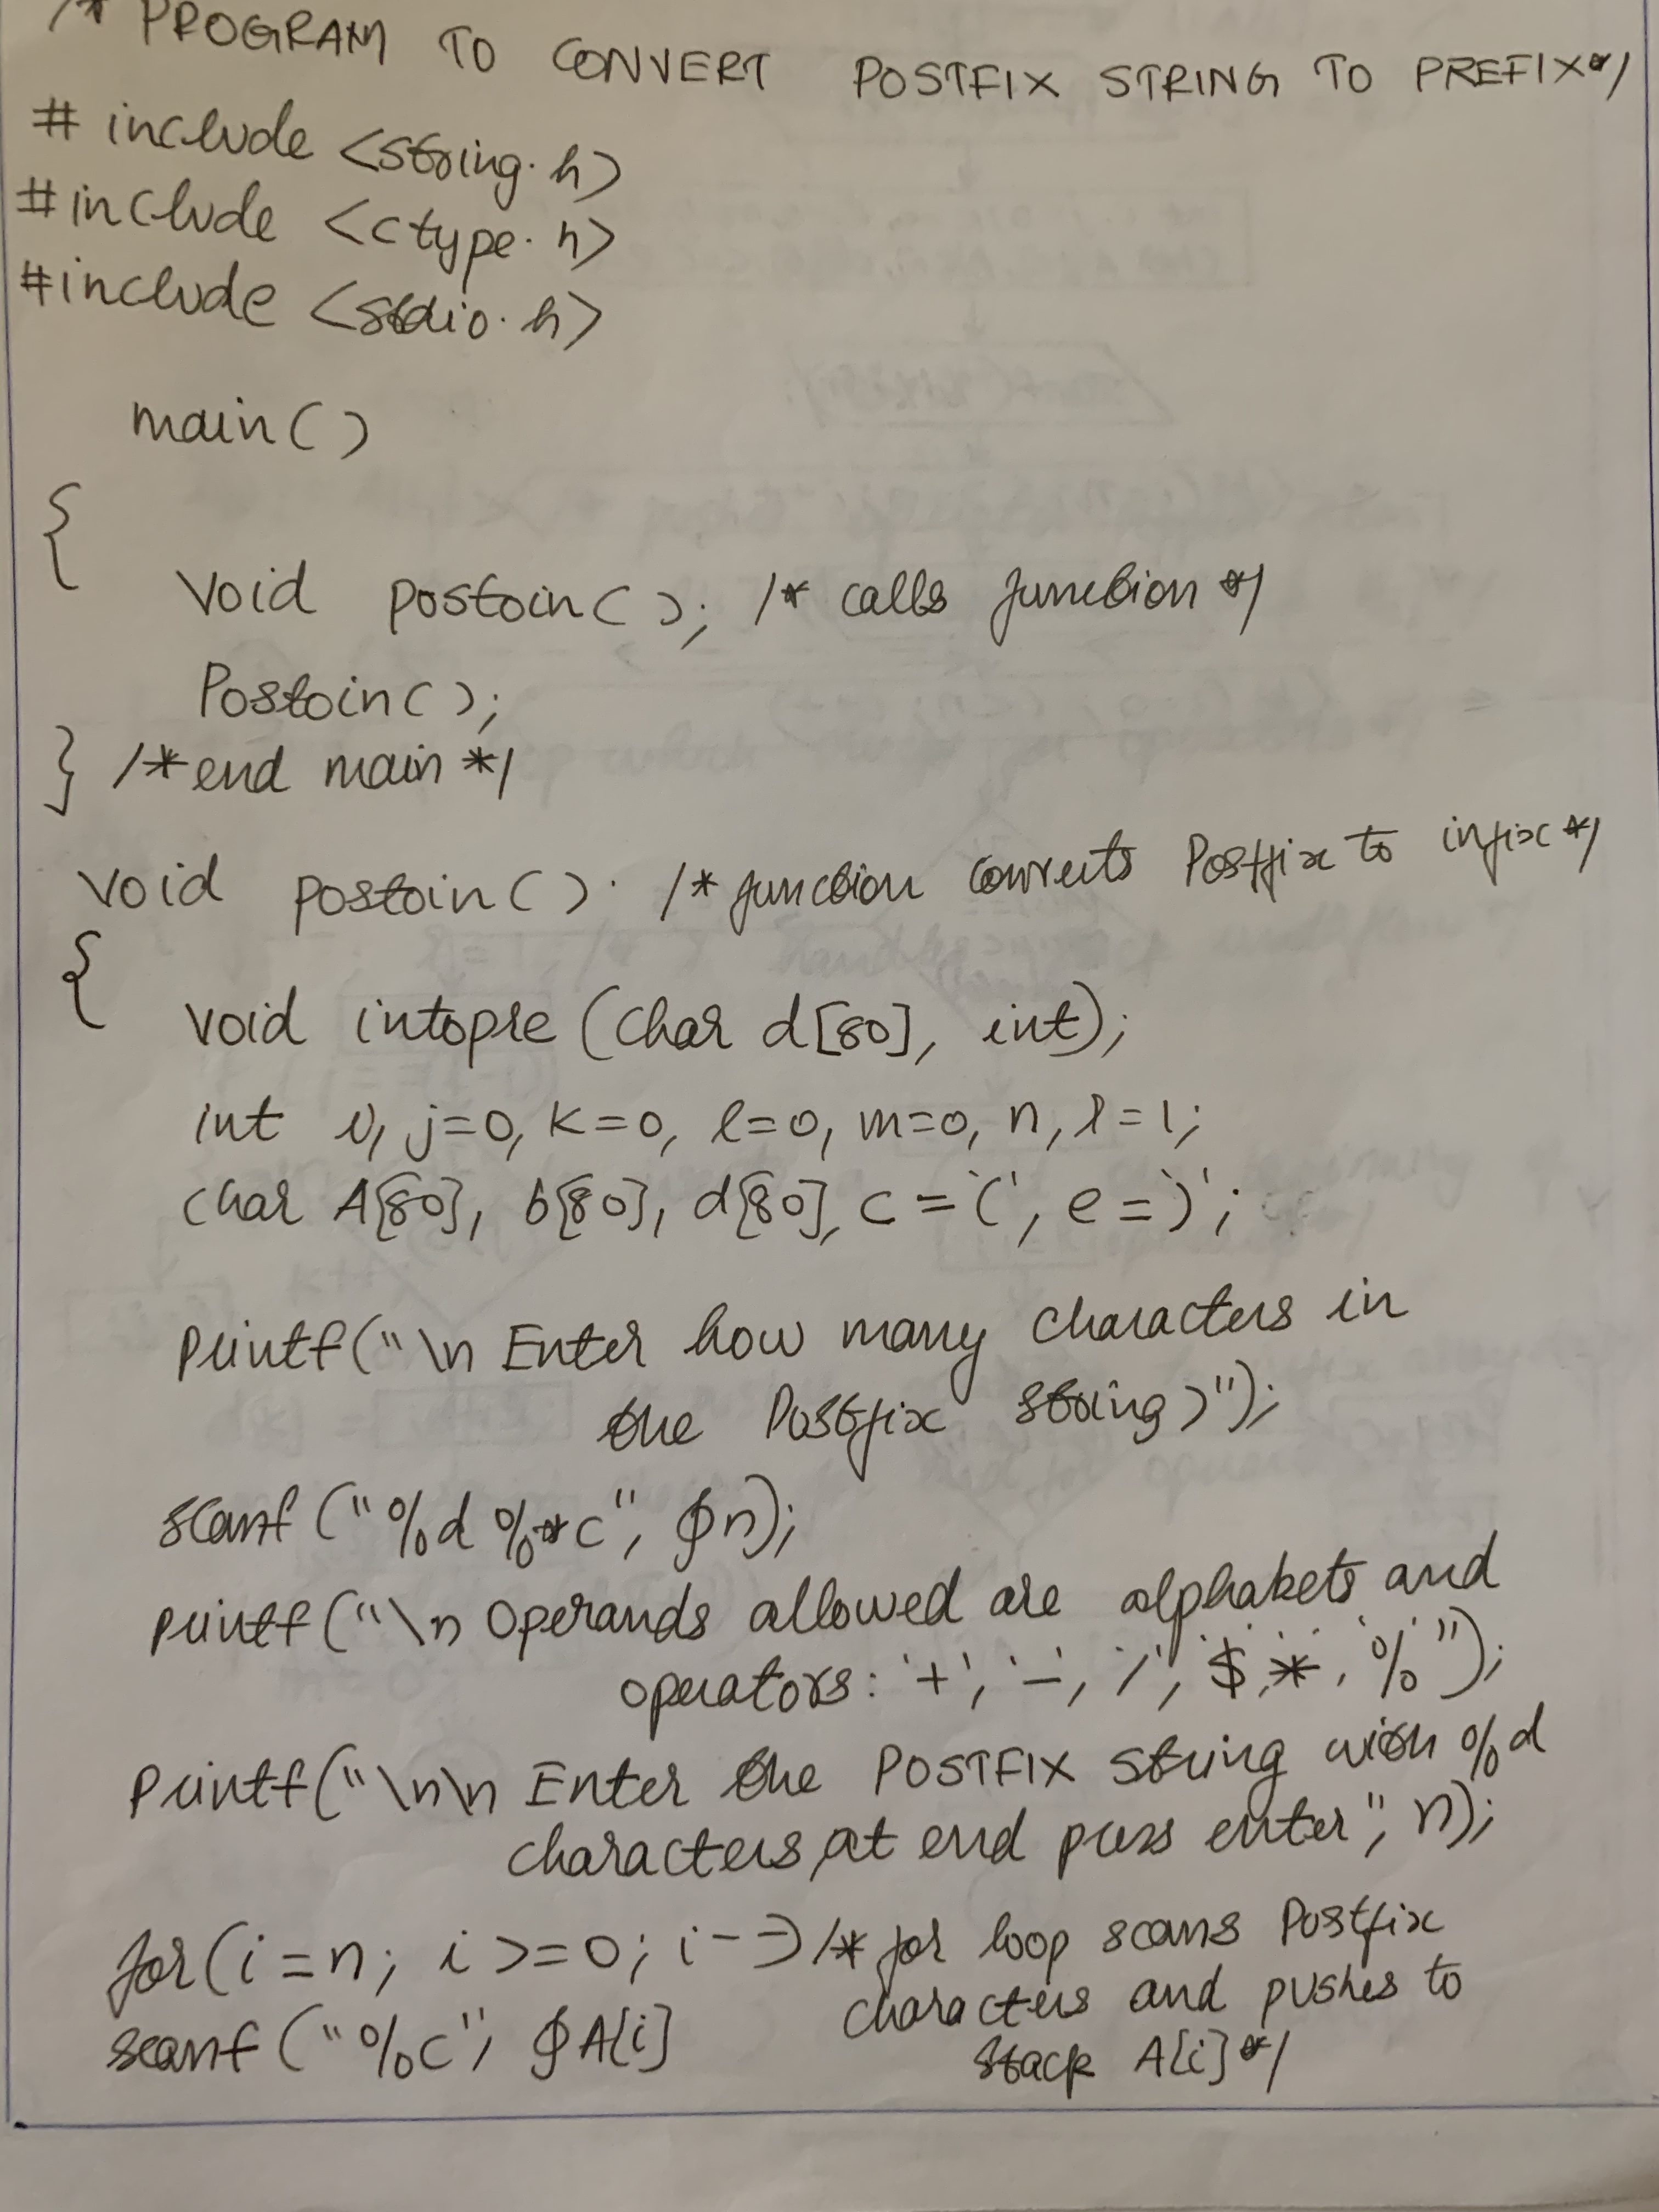 /* PROGRAM TO CONVERT POSTFIX STRING TO PREFIX*/
# include <string.h>
#include <ctype.h>
#include <stdio.h>
main()
{
void postoin(); /* calls function */
Postoin();
} /*end main */
void postoin() /* function converts Postfix to infix */
{
void intopre (char d[80], int);
int i, j=0, k=0, l=0, m=0, n, l=1;
char A[80], b[80], d[80], c='(', e=')';
printf("\n Enter how many characters in
the Postfix string>");
scanf ("%d %*c", &n);
printf("\n Operands allowed are alphabets and
operators: '+', '-', '/', '$, *, '%'");
printf("\n\n Enter the POSTFIX string with %d
characters, at end press enter", n);
for(i=n; i>=0; i--) /* for loop scans Postfix
characters and pushes to
scanf ("%c", &A[i]
stack A[i] */